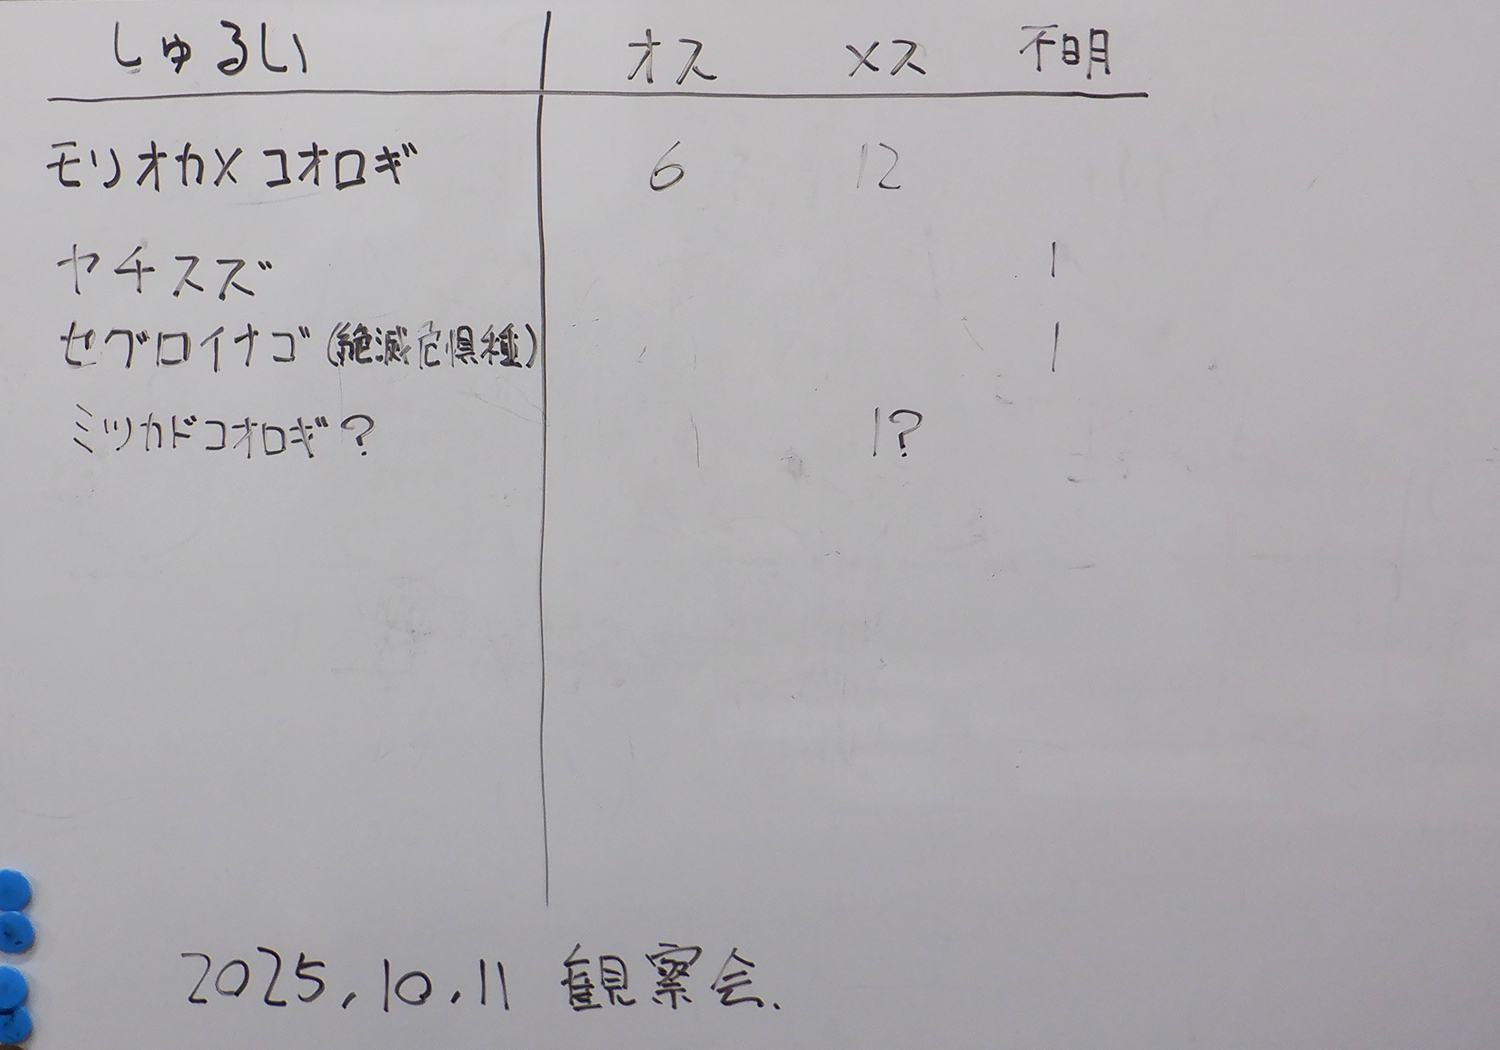 しゅるい オス メス 不明
モリオカメコオロギ 6 12
ヤチスズ 1
セグロイナゴ(絶滅危惧種) 1
ミツカドコオロギ? 1?
2025.10.11 観察会.